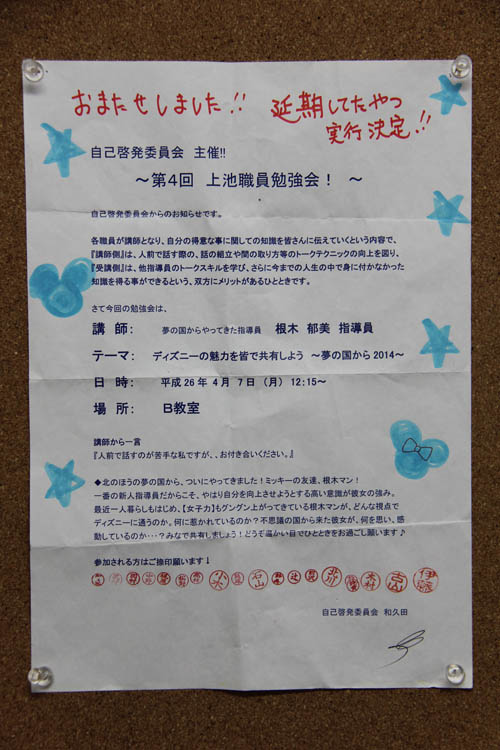 おまたせしました!! 延期してたやつ
実行決定!!
自己啓発委員会 主催!!
～第4回 上池職員勉強会! ～
自己啓発委員会からのお知らせです。
各職員が講師となり、自分の得意な事に関しての知識を皆さんに伝えていくという内容で、
『講師側』は、人前で話す際の、話の組立や間の取り方等のトークテクニックの向上を図り、
『受講側』は、他指導員のトークスキルを学び、さらに今までの人生の中で身に付かなかった
知識を得る事ができるという、双方にメリットがあるひとときです。
さて今回の勉強会は、
講 師: 夢の国からやってきた指導員 根木 郁美 指導員
テーマ: ディズニーの魅力を皆で共有しよう ～夢の国から2014～
日 時: 平成26年4月7日(月) 12:15～
場 所: B教室
講師から一言
『人前で話すのが苦手な私ですが、、お付き合いください。』
◆北のほうの夢の国から、ついにやってきました!ミッキーの友達、根木マン!
一番の新人指導員だからこそ、やはり自分を向上させようとする高い意識が彼女の強み。
最近一人暮らしもはじめ、【女子力】もグングン上がってきている根木マンが、どんな視点で
ディズニーに通うのか。何に惹かれているのか?不思議の国から来た彼女が、何を思い、感
動しているのか・・・?みなで共有しましょう!どうぞ温かい目でひとときをお過ごし願います♪
参加される方はご捺印願います↓
石山 西山 伊藤
自己啓発委員会 和久田